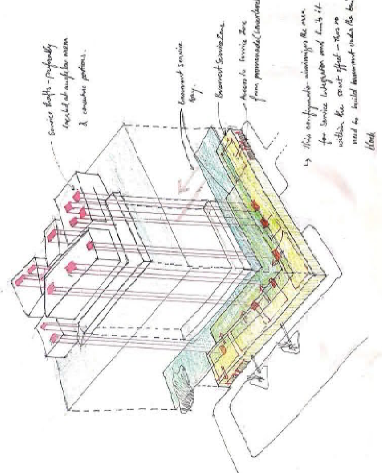 Service Shafts - preferably
located at single bar ends
& concentric positions.
Basement Service
Bay.
Basement Service Zone
Access to Service Zone
from promenade
↳ This configuration minimizes the area
for service integration and limits it
within the court offset - Thus no
need to build basement under the
block